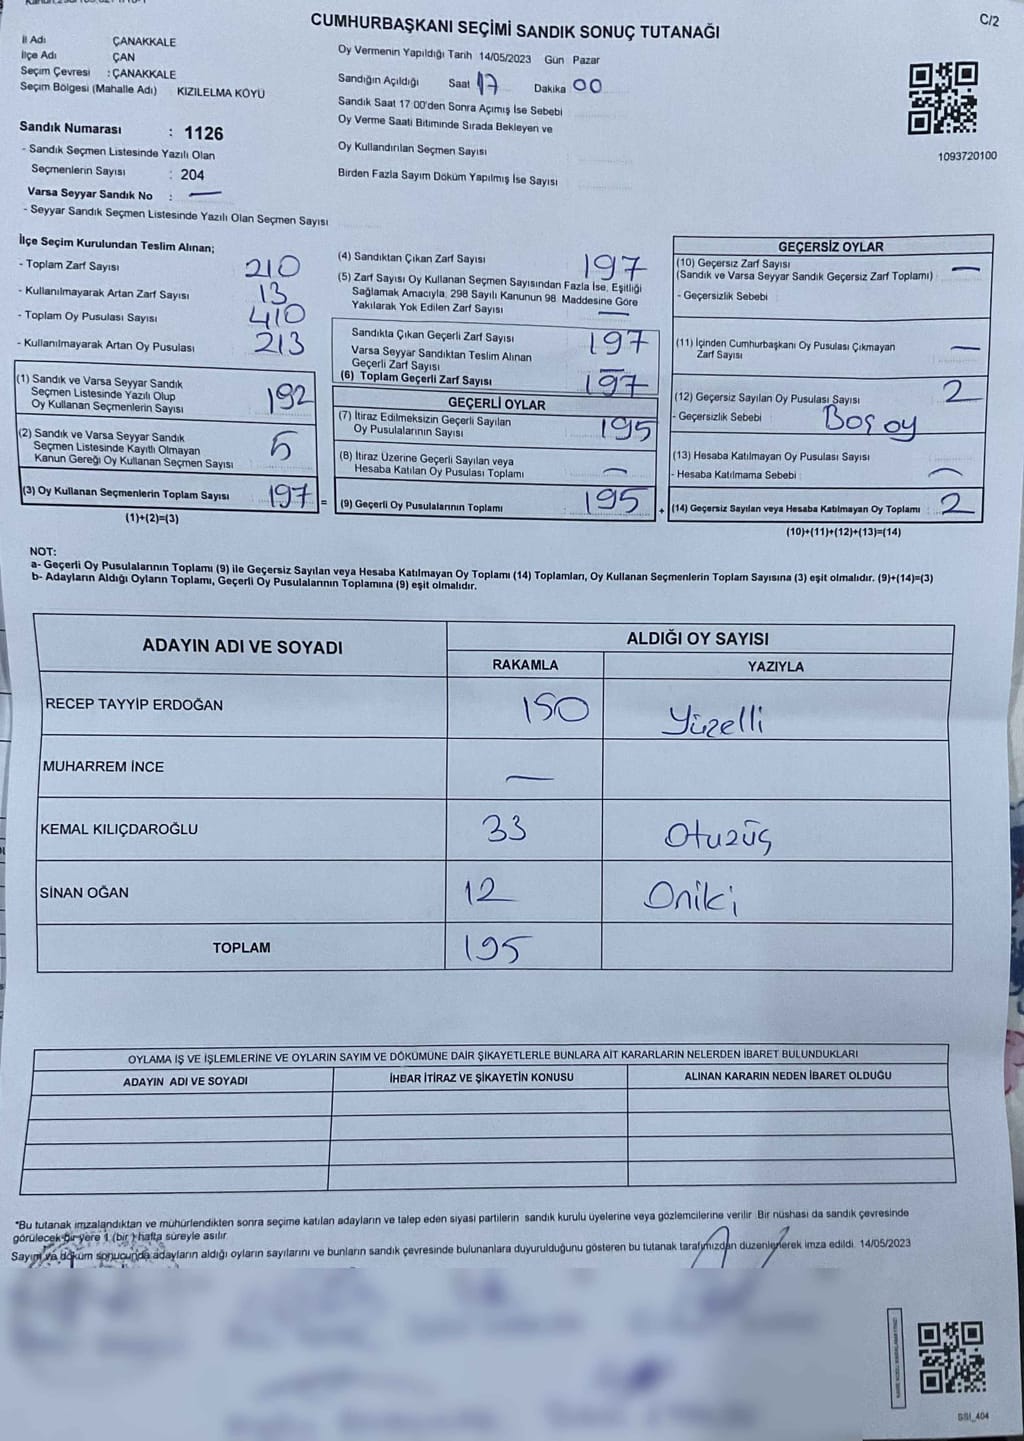 CUMHURBAŞKANI SEÇİMİ SANDIK SONUÇ TUTANAĞI
C/2
İl Adı ÇANAKKALE
İlçe Adı ÇAN
Seçim Çevresi : ÇANAKKALE
Seçim Bölgesi (Mahalle Adı) KIZILELMA KÖYÜ
Sandık Numarası : 1126
- Sandık Seçmen Listesinde Yazılı Olan
Seçmenlerin Sayısı : 204
Varsa Seyyar Sandık No : —
- Seyyar Sandık Seçmen Listesinde Yazılı Olan Seçmen Sayısı
Oy Vermenin Yapıldığı Tarih 14/05/2023 Gün Pazar
Sandığın Açıldığı Saat 17 Dakika 00
Sandık Saat 17:00'den Sonra Açımış İse Sebebi
Oy Verme Saati Bitiminde Sırada Bekleyen ve
Oy Kullandırılan Seçmen Sayısı
Birden Fazla Sayım Döküm Yapılmış İse Sayısı
1093720100
İlçe Seçim Kurulundan Teslim Alınan;
- Toplam Zarf Sayısı 210
- Kullanılmayarak Artan Zarf Sayısı 13
- Toplam Oy Pusulası Sayısı 410
- Kullanılmayarak Artan Oy Pusulası 213
(1) Sandık ve Varsa Seyyar Sandık
Seçmen Listesinde Yazılı Olup
Oy Kullanan Seçmenlerin Sayısı 192
(2) Sandık ve Varsa Seyyar Sandık
Seçmen Listesinde Kayıtlı Olmayan
Kanun Gereği Oy Kullanan Seçmen Sayısı 5
(3) Oy Kullanan Seçmenlerin Toplam Sayısı 197 =
(1)+(2)=(3)
(4) Sandıktan Çıkan Zarf Sayısı 197
(5) Zarf Sayısı Oy Kullanan Seçmen Sayısından Fazla İse, Eşitliği
Sağlamak Amacıyla, 298 Sayılı Kanunun 98. Maddesine Göre
Yakılarak Yok Edilen Zarf Sayısı —
Sandıkta Çıkan Geçerli Zarf Sayısı 197
Varsa Seyyar Sandıktan Teslim Alınan
Geçerli Zarf Sayısı —
(6) Toplam Geçerli Zarf Sayısı 197
GEÇERLİ OYLAR
(7) İtiraz Edilmeksizin Geçerli Sayılan
Oy Pusulalarının Sayısı 195
(8) İtiraz Üzerine Geçerli Sayılan veya
Hesaba Katılan Oy Pusulası Toplamı —
(9) Geçerli Oy Pusulalarının Toplamı 195 +
GEÇERSİZ OYLAR
(10) Geçersiz Zarf Sayısı —
(Sandık ve Varsa Seyyar Sandık Geçersiz Zarf Toplamı)
- Geçersizlik Sebebi
(11) İçinden Cumhurbaşkanı Oy Pusulası Çıkmayan
Zarf Sayısı —
(12) Geçersiz Sayılan Oy Pusulası Sayısı 2
- Geçersizlik Sebebi Boş oy
(13) Hesaba Katılmayan Oy Pusulası Sayısı
- Hesaba Katılmama Sebebi —
(14) Geçersiz Sayılan veya Hesaba Katılmayan Oy Toplamı 2
(10)+(11)+(12)+(13)=(14)
NOT:
a- Geçerli Oy Pusulalarının Toplamı (9) ile Geçersiz Sayılan veya Hesaba Katılmayan Oy Toplamı (14) Toplamları, Oy Kullanan Seçmenlerin Toplam Sayısına (3) eşit olmalıdır. (9)+(14)=(3)
b- Adayların Aldığı Oyların Toplamı, Geçerli Oy Pusulalarının Toplamına (9) eşit olmalıdır.
ADAYIN ADI VE SOYADI ALDIĞI OY SAYISI
RAKAMLA YAZIYLA
RECEP TAYYİP ERDOĞAN 150 Yüzelli
MUHARREM İNCE —
KEMAL KILIÇDAROĞLU 33 Otuzüç
SİNAN OĞAN 12 Oniki
TOPLAM 195
OYLAMA İŞ VE İŞLEMLERİNE VE OYLARIN SAYIM VE DÖKÜMÜNE DAİR ŞİKAYETLERLE BUNLARA AİT KARARLARIN NELERDEN İBARET BULUNDUKLARI
ADAYIN ADI VE SOYADI İHBAR İTİRAZ VE ŞİKAYETİN KONUSU ALINAN KARARIN NEDEN İBARET OLDUĞU
*Bu tutanak imzalandıktan ve mühürlendikten sonra seçime katılan adayların ve talep eden siyasi partilerin sandık kurulu üyelerine veya gözlemcilerine verilir. Bir nüshası da sandık çevresinde
görülecek bir yere 1 (bir ) hafta süreyle asılır.
Sayım ve döküm sonucunda adayların aldığı oyların sayılarını ve bunların sandık çevresinde bulunanlara duyurulduğunu gösteren bu tutanak tarafımızdan düzenlenerek imza edildi. 14/05/2023
GSI_404